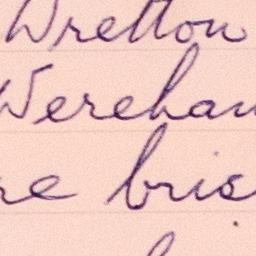 Dretton
Wereham
re bris